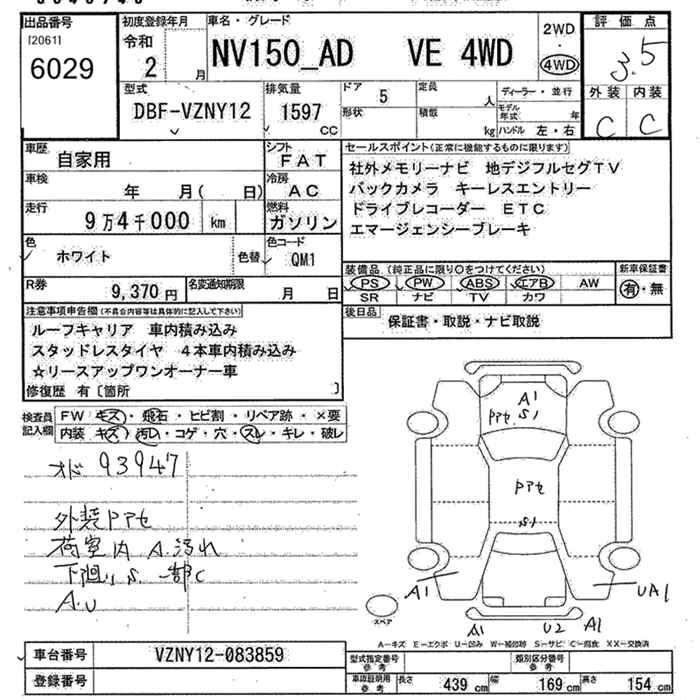 出品番号
[2061]
6029
初度登録年月
令和
2 月
車名・グレード
NV150_AD VE 4WD
2WD
・
4WD
評価点
3.5
外装 内装
C C
型式
DBF-VZNY12
排気量
1597
cc
ドア 5
形状
定員
人
積載
kg
ディーラー・並行
モデル年式 年
ハンドル 左・右
車歴
自家用
シフト
FAT
車検
年 月( 日)
冷房
AC
走行
9万4千000 km
燃料
ガソリン
色
ホワイト
色替
色コード
QM1
R券
9,370 円
名変通知期限
月 日
セールスポイント(正常に機能するものに限ります)
社外メモリーナビ 地デジフルセグTV
バックカメラ キーレスエントリー
ドライブレコーダー ETC
エマージェンシーブレーキ
装備品(純正品に限り○をつけてください)
PS PW ABS エアB AW
SR ナビ TV カワ
新車保証書
有・無
後日品
保証書・取説・ナビ取説
注意事項申告欄(不具合内容等は具体的に記入して下さい)
ルーフキャリア 車内積み込み
スタッドレスタイヤ 4本車内積み込み
☆リースアップワンオーナー車
修復歴 有〔箇所 〕
検査員
記入欄
FW キズ・飛石・ヒビ割・リペア跡・×要
内装 キズ・汚レ・コゲ・穴・スレ・キレ・破レ
オド 93947
外装 PPt
荷室内 A.汚れ
下廻り S. 一部C
A.U
A1
PPt S1
PPt
S1
A1
UA1
A1
U2
A1
スペア
A-キズ E-エクボ U-凹み W-補修跡 S-サビ C-腐食 XX-交換済
車台番号
VZNY12-083859
登録番号
型式指定番号
参考
類別区分番号
参考
車認証明用
参考
長さ 439 cm 幅 169 cm 高さ 154 cm